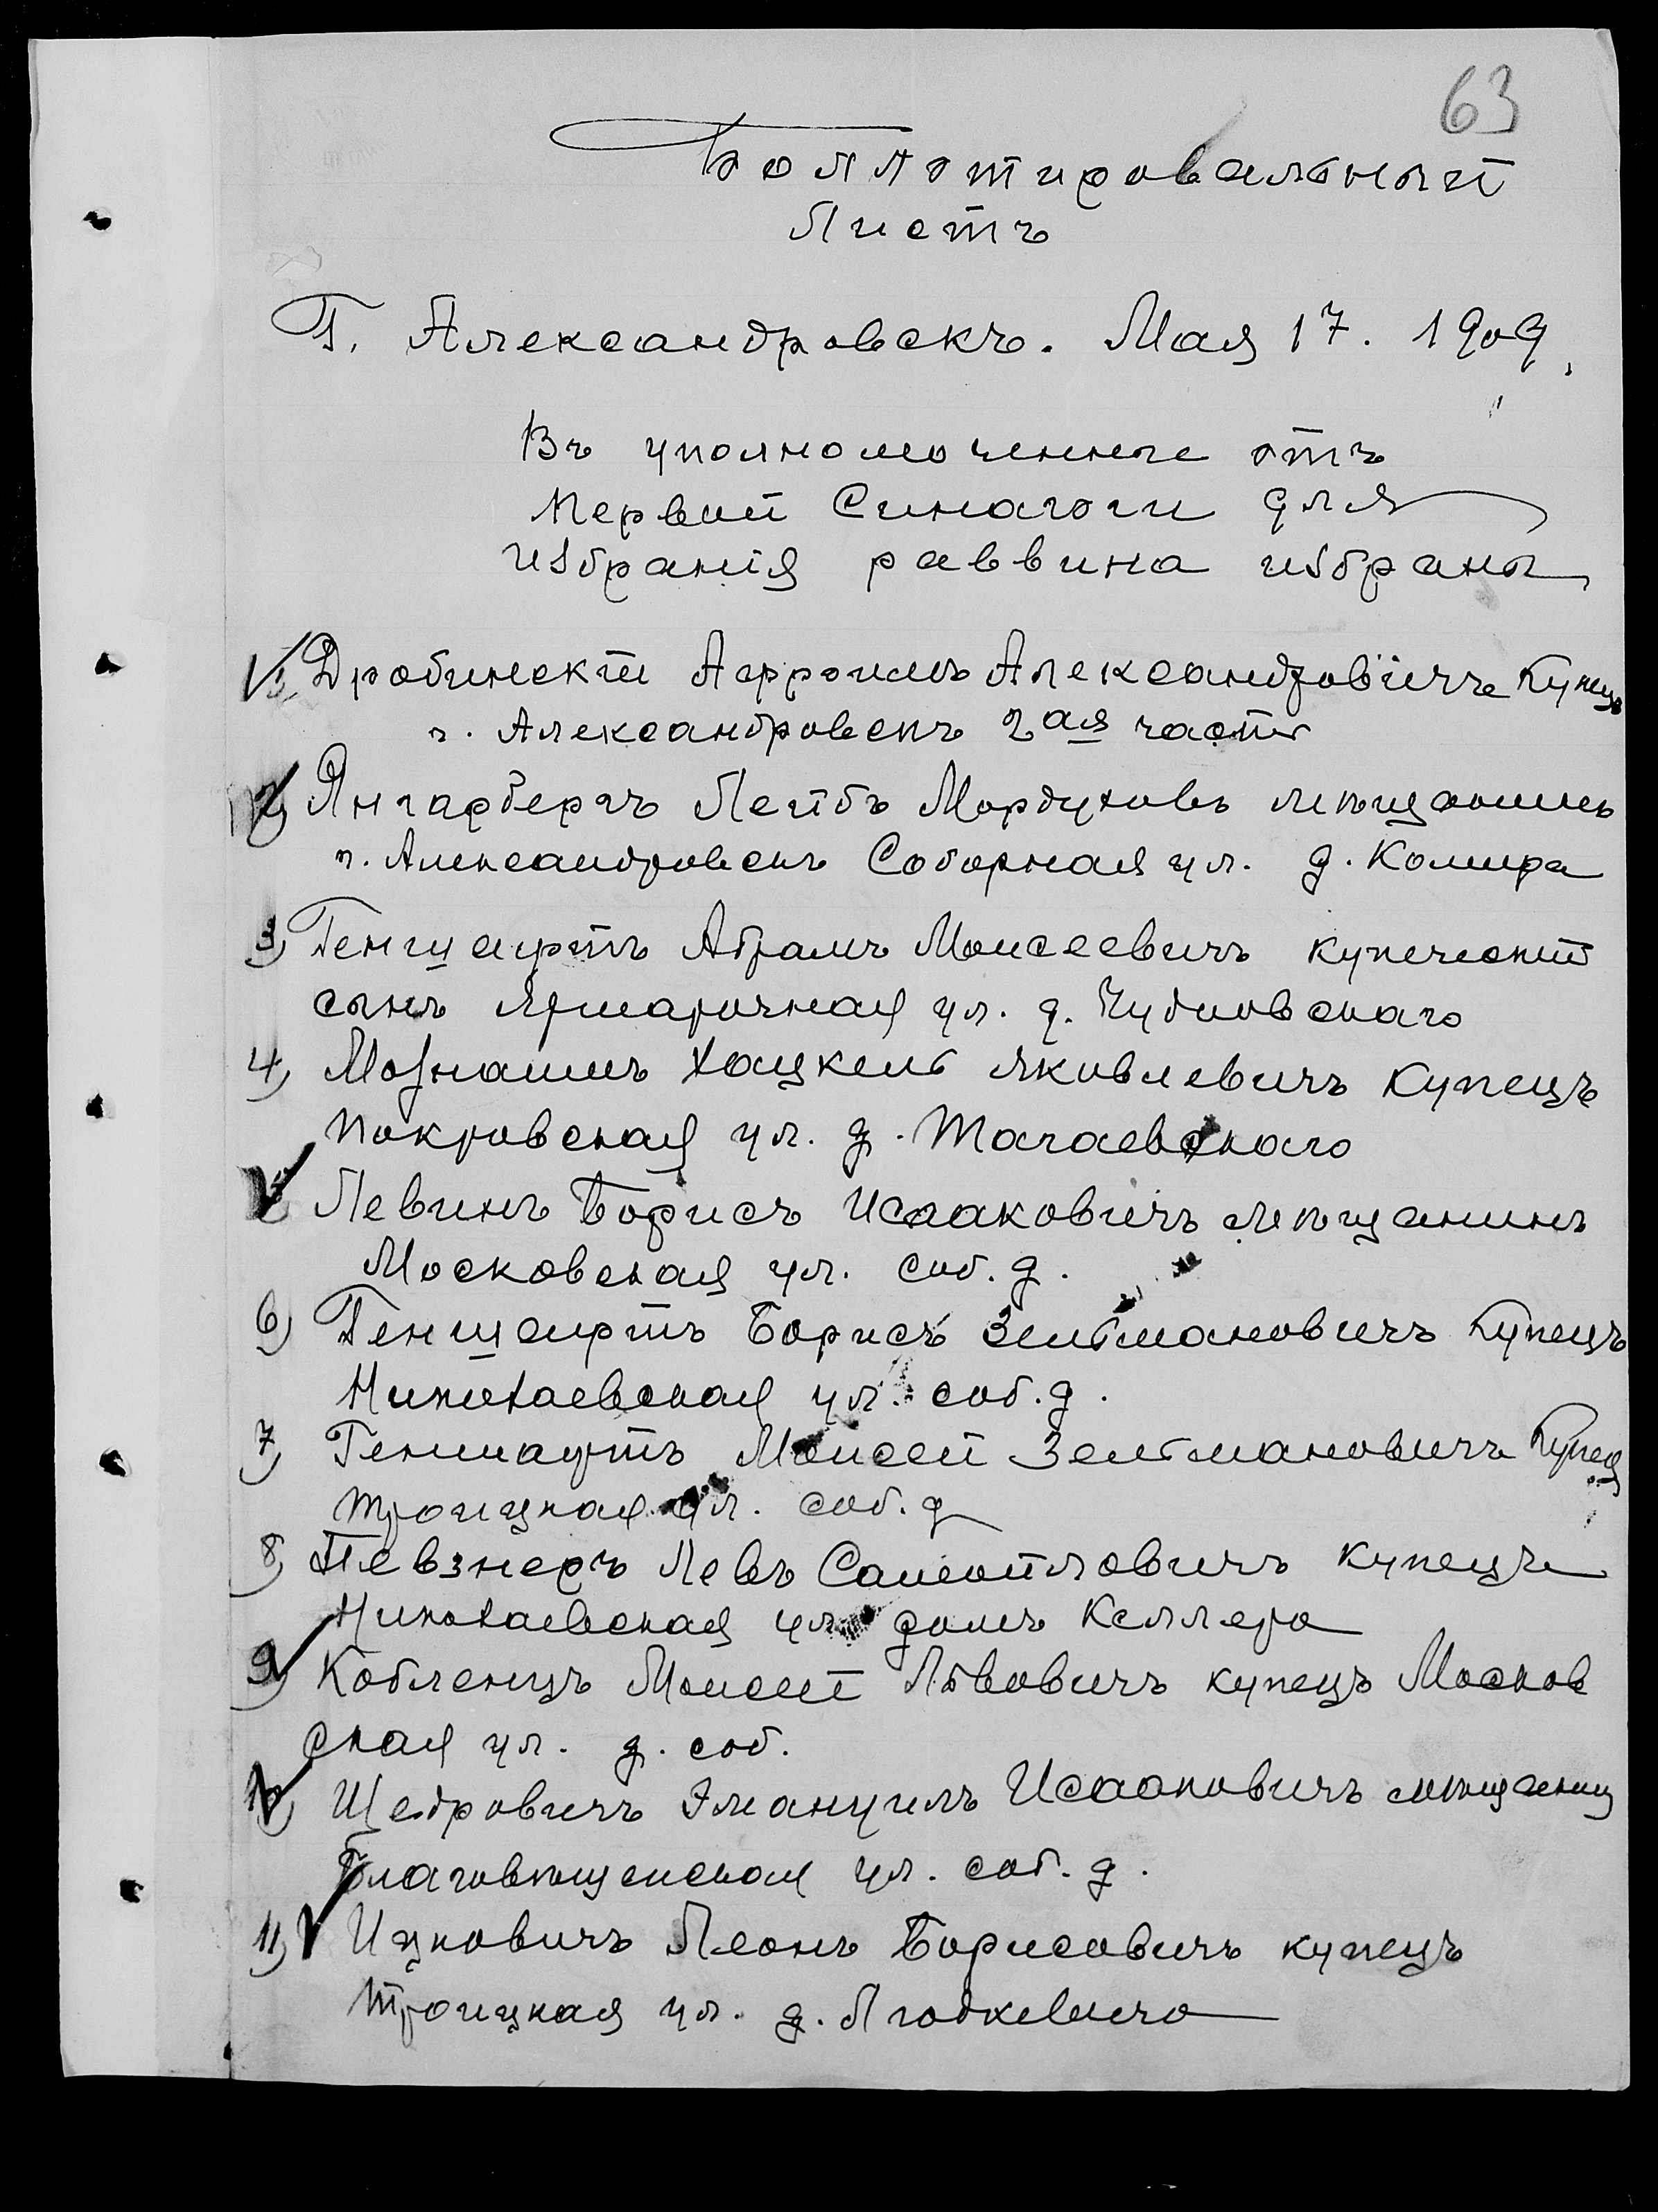 63
Боллотировальный
Листъ
Г. Александровскъ. Мая 17. 1909.
Въ уполномоченные отъ
первой Синагоги для
избранія раввина избраны
1) Дробинскій Аффроимъ Александровичъ Купецъ
г. Александровскъ 2ая часть
2) Янгарберъ Лейбъ Мордуховъ мѣщанинъ
г. Александровскъ Соборная ул. д. Комира
3) Геншауртъ Абрамъ Моисеевичъ купеческій
сынъ Ярмарочная ул. д. Чудновскаго
4) Хацкель Яковлевичъ Купецъ
Покровская ул. д. Тагаевскаго
Левинъ Борисъ Исааковичъ мѣщанинъ
Московская ул. соб. д.
6) Геншауртъ Борисъ Зельмановичъ Купецъ
Николаевская ул. соб. д.
7) Геншауртъ Моисей Зельмановичъ Купец
Троицкая ул. соб. д
8) Певзнеръ Левъ Самойловичъ купецъ
Николаевская ул. домъ Келлера
9) Кобленцъ Моисей Львовичъ купецъ Москов
ская ул. д. соб.
10) Щедровичъ Эмануилъ Исааковичъ мѣщанин
Благовѣщенская ул. соб. д.
11) Ицковичъ Леонъ Борисовичъ купецъ
Троицкая ул. д.